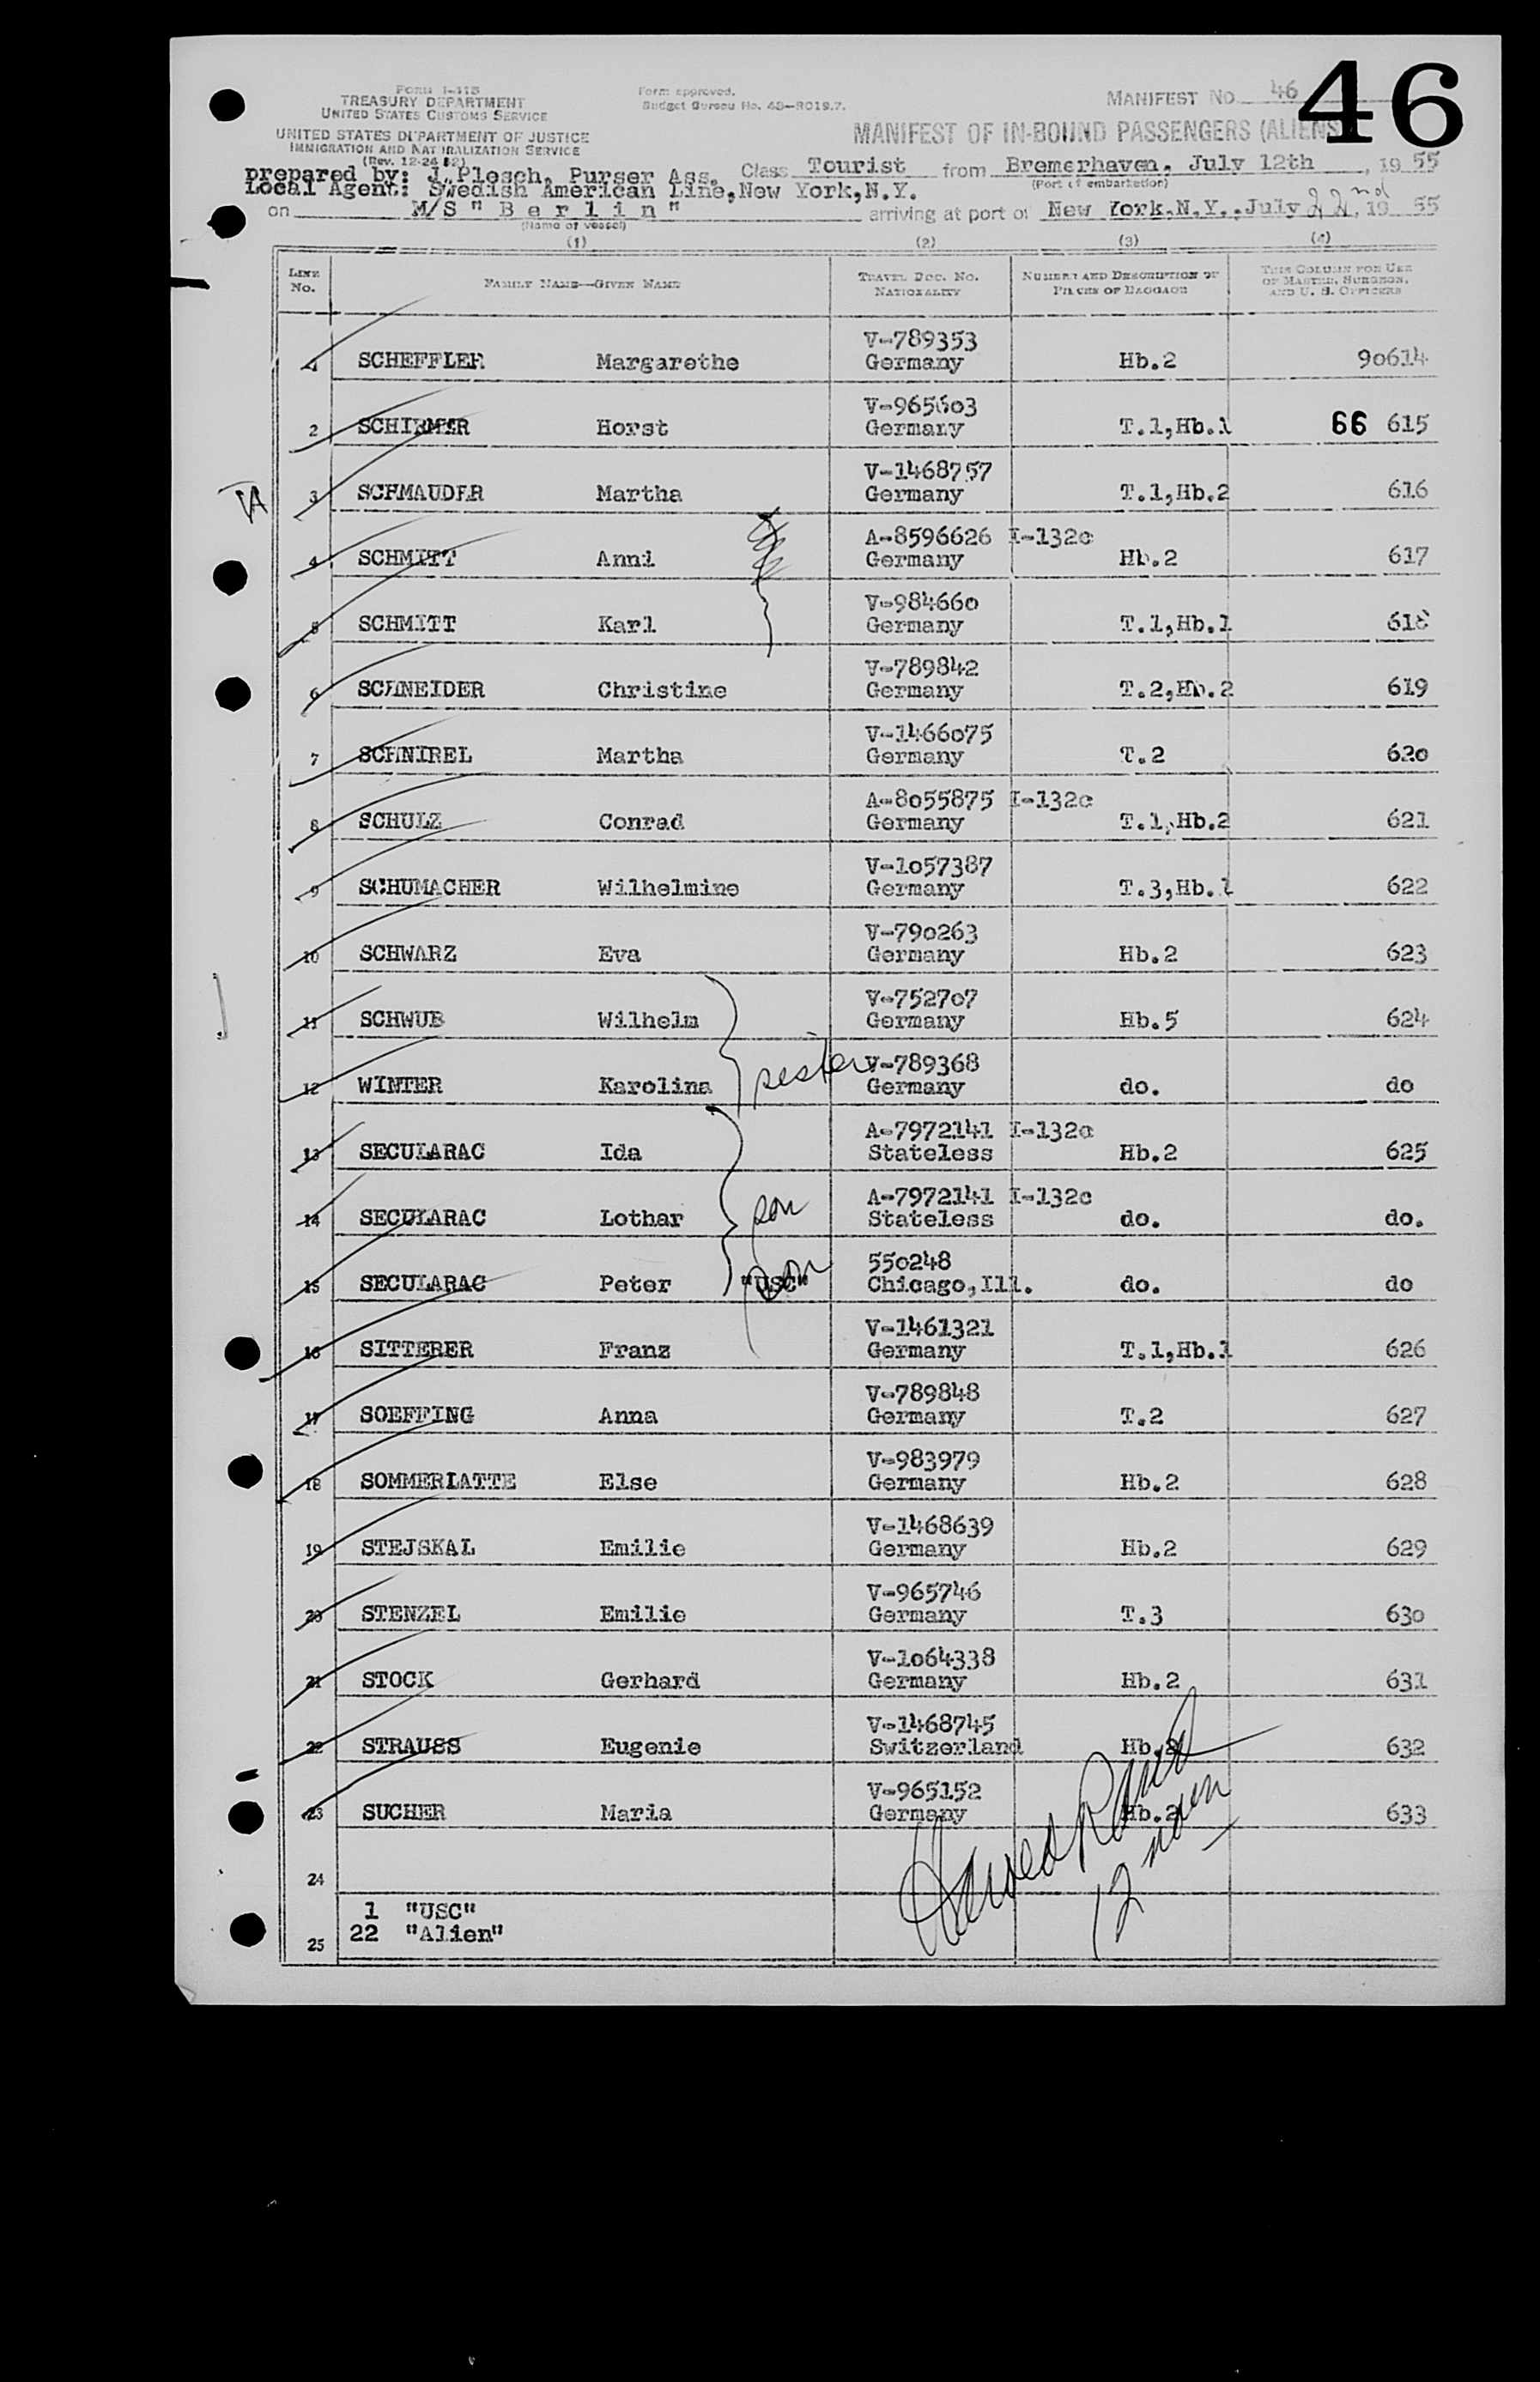 46
Form I-418
TREASURY DEPARTMENT
UNITED STATES CUSTOMS SERVICE
UNITED STATES DEPARTMENT OF JUSTICE
IMMIGRATION AND NATURALIZATION SERVICE
(Rev. 12-24-52)
Form approved.
Budget Bureau No. 43-R019.7.
MANIFEST NO. 46
MANIFEST OF IN-BOUND PASSENGERS (ALIENS)
prepared by: J. Plesch, Purser Ass. Class Tourist from Bremerhaven, July 12th, 19 55
(Port of embarkation)
Local Agent: Swedish American Line, New York, N.Y.
on M/S "B e r l i n" arriving at port of New York, N.Y., July 22nd, 19 55
(Name of vessel)
(1) (2) (3) (4)
LINE No. FAMILY NAME—GIVEN NAME TRAVEL DOC. No. NATIONALITY NUMBER AND DESCRIPTION OF PIECES OF BAGGAGE THIS COLUMN FOR USE OF MASTER, SURGEON, AND U. S. OFFICERS
V-789353
1 SCHEFFLER Margarethe Germany Hb.2 90614
V-965603
2 SCHIRMER Horst Germany T.1,Hb.1 66 615
V-1468757
3 SCHMAUDER Martha Germany T.1,Hb.2 616
A-8596626 I-132c
4 SCHMITT Anni Germany Hb.2 617
V-984660
5 SCHMITT Karl Germany T.1,Hb.1 618
V-789842
6 SCHNEIDER Christine Germany T.2,Hb.2 619
V-1466075
7 SCHNIREL Martha Germany T.2 620
A-8055875 I-132c
8 SCHULZ Conrad Germany T.1,Hb.2 621
V-1057387
9 SCHUMACHER Wilhelmine Germany T.3,Hb.1 622
V-790263
10 SCHWARZ Eva Germany Hb.2 623
V-752707
11 SCHWUB Wilhelm Germany Hb.5 624
sister V-789368
12 WINTER Karolina Germany do. do
A-7972141 I-132c
13 SECULARAC Ida Stateless Hb.2 625
A-7972141 I-132c
14 SECULARAC Lothar son Stateless do. do.
550248
15 SECULARAC Peter "USC" son Chicago,Ill. do. do
V-1461321
16 SITTERER Franz Germany T.1,Hb.1 626
V-789848
17 SOEFFING Anna Germany T.2 627
V-983979
18 SOMMERLATTE Else Germany Hb.2 628
V-1468639
19 STEJSKAL Emilie Germany Hb.2 629
V-965746
20 STENZEL Emilie Germany T.3 630
V-1064338
21 STOCK Gerhard Germany Hb.2 631
V-1468745
22 STRAUSS Eugenie Switzerland Hb.2 632
V-965152
23 SUCHER Maria Germany Hb.2 633
24
1 "USC"
22 "Alien"
25
12 noon